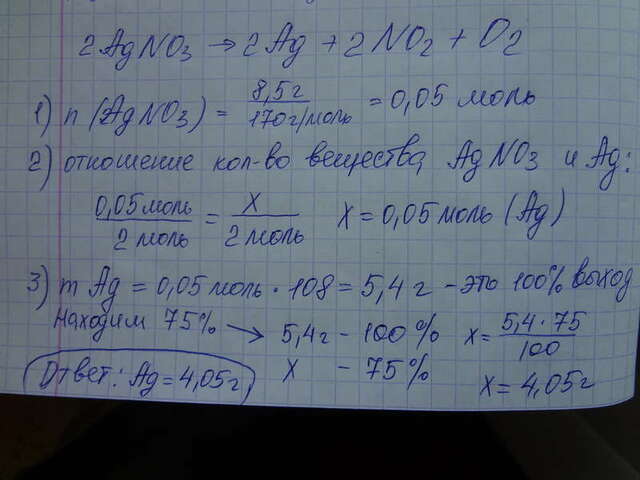 2AgNO₃ → 2Ag + 2NO₂ + O₂
1) n (AgNO₃) = 8,5г / 170г/моль = 0,05 моль
2) отношение кол-во вещества AgNO₃ и Ag:
0,05 моль / 2 моль = X / 2 моль X = 0,05 моль (Ag)
3) m Ag = 0,05 моль · 108 = 5,4 г - это 100% выход
Находим 75% → 5,4г - 100% X = 5,4 · 75 / 100
X - 75% X = 4,05г
Ответ: Ag = 4,05г